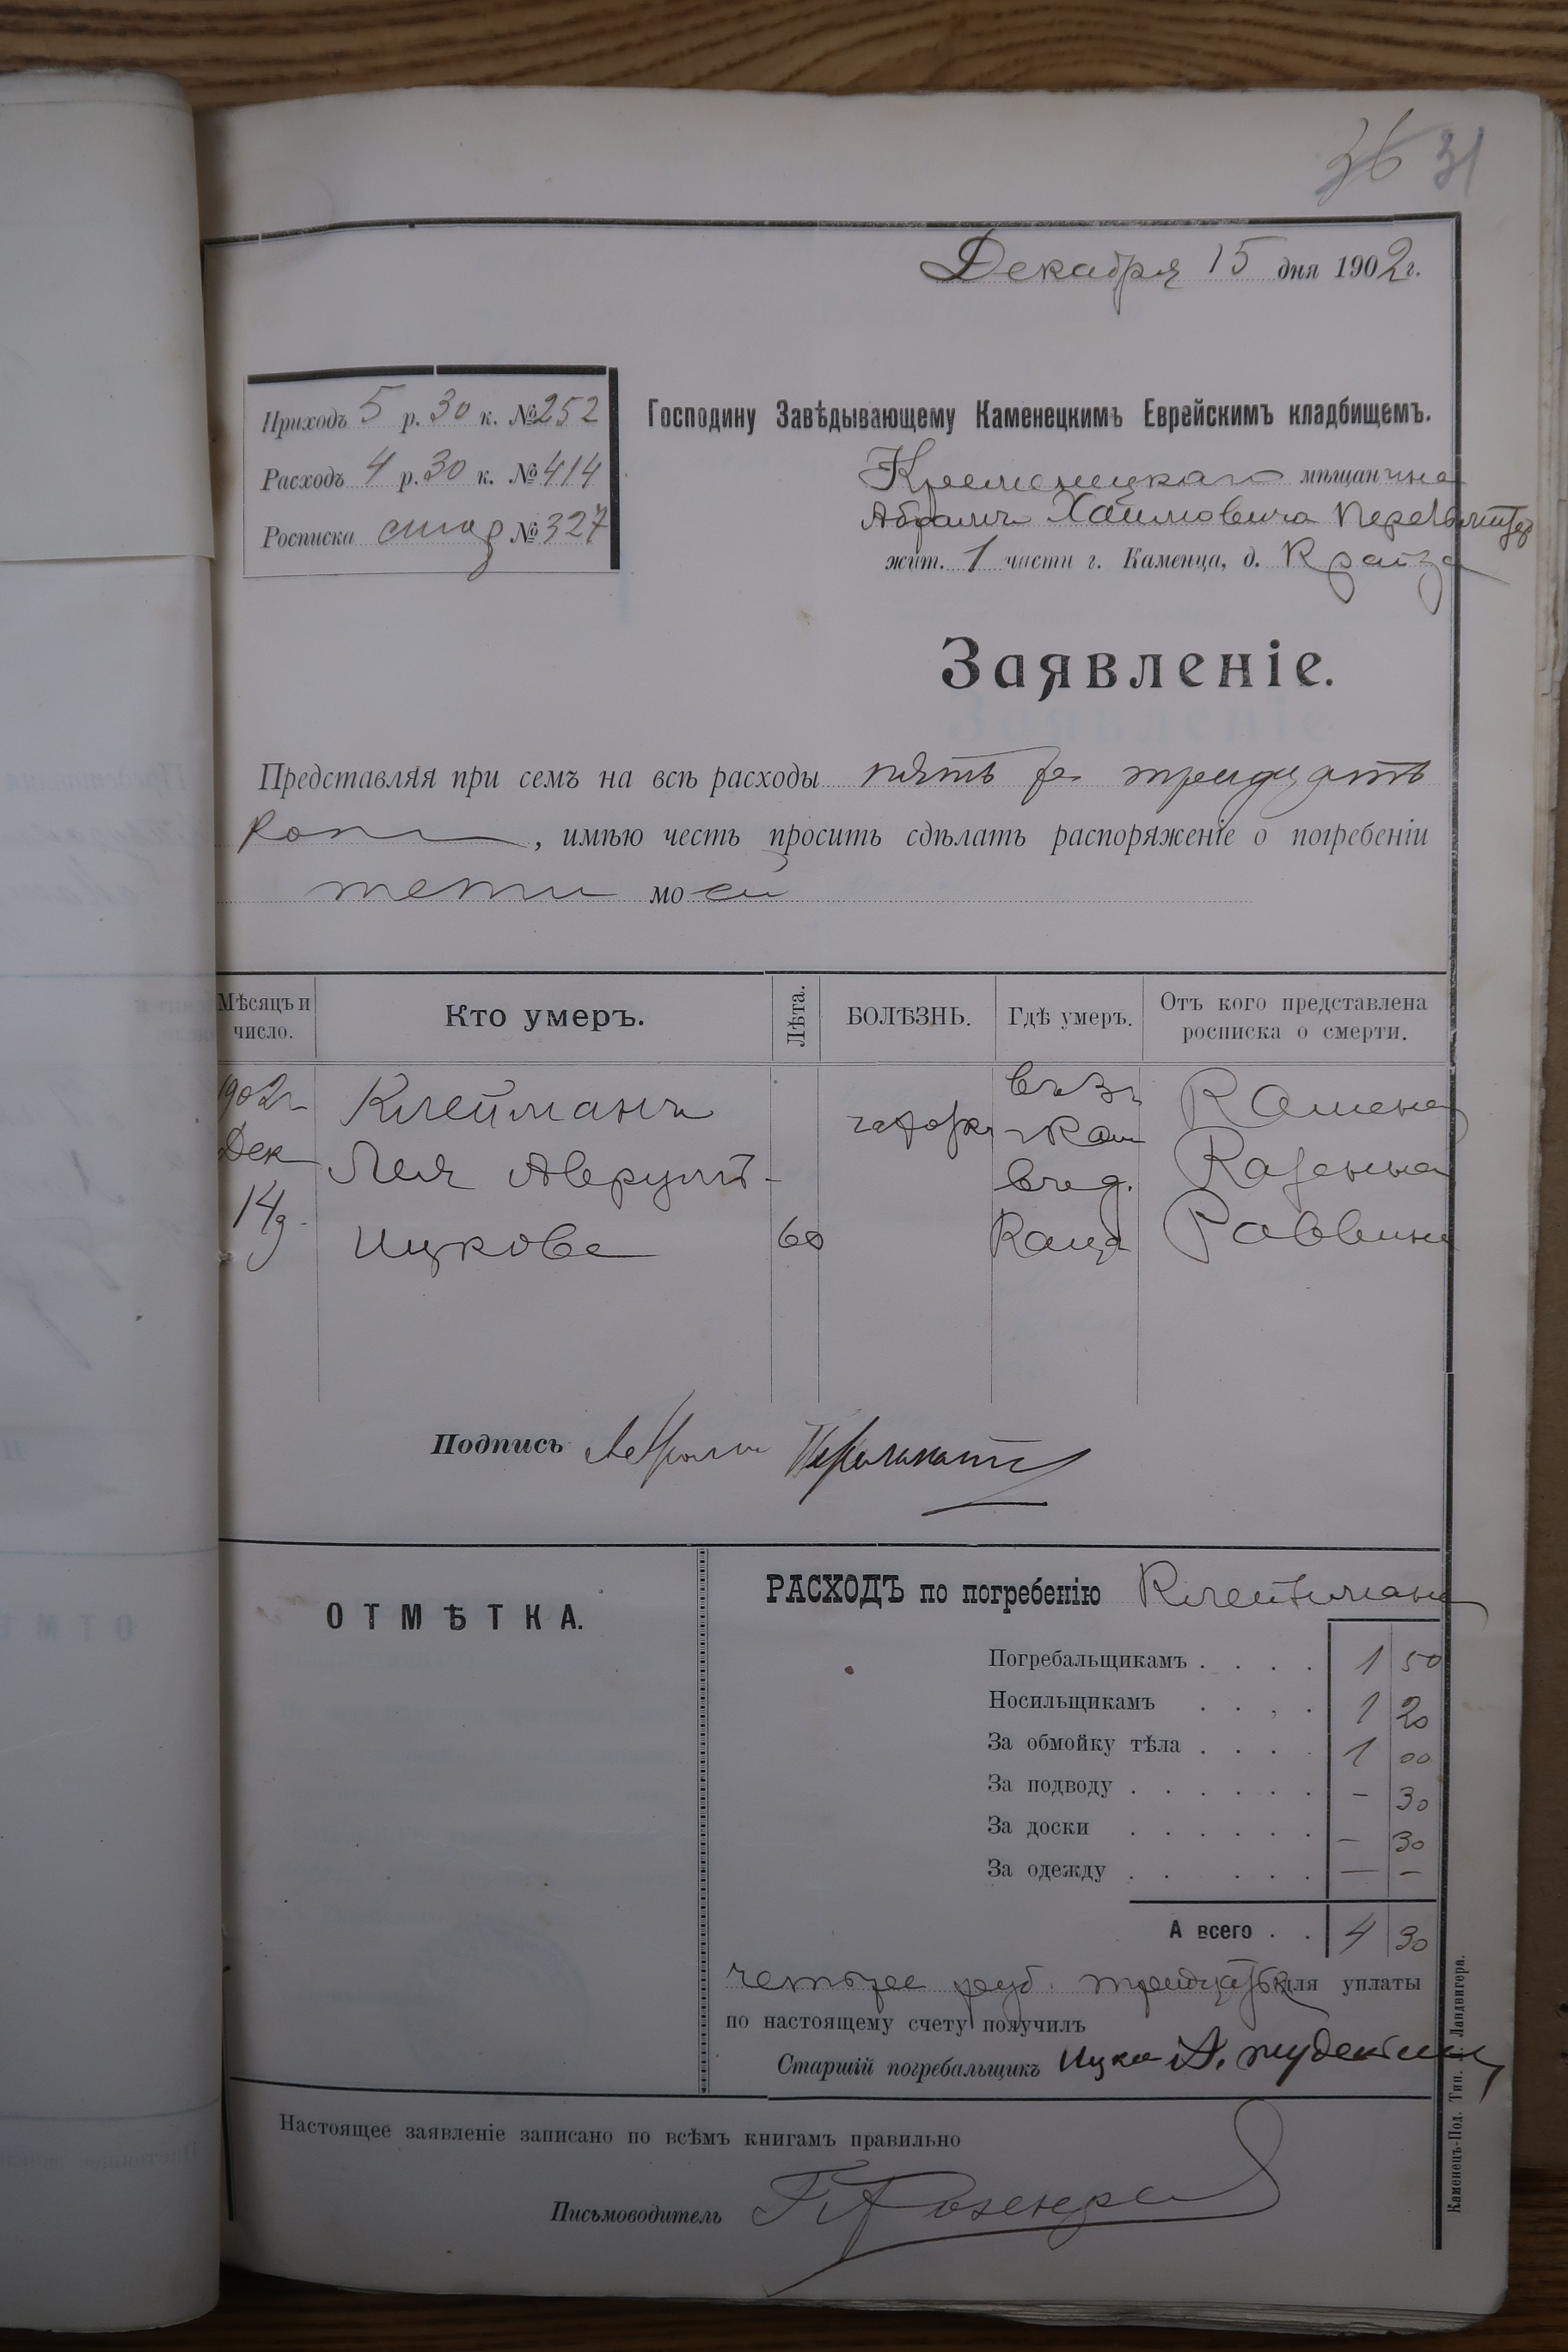 36 31
Декабря 15 дня 1902 г.
Приходъ 5 р. 30 к. № 252
Расходъ 4 р. 30 к. № 414
Росписка № 327
Господину Завѣдывающему Каменецкимъ Еврейскимъ кладбищемъ.
Кременецкаго мѣщанина
Абрамъ Хаимовича
жит. 1 части г. Каменца, д. Крайза
Заявленіе.
Представляя при семъ на всѣ расходы пять р. тридцать
коп, имѣю честь просить сдѣлать распоряженіе о погребеніи
тети моей
Мѣсяцъ и число. Кто умеръ. Лѣта. БОЛѢЗНЬ. Гдѣ умеръ. Отъ кого представлена росписка о смерти.
1902 г Клейманъ Камене
Дек Лея Аврумъ- Казенна
14 д. Ицкова 60 Каца Раввина
Подпись
ОТМѢТКА.
РАСХОДЪ по погребенію Клеймана
Погребальщикамъ . . . . 1 50
Носильщикамъ . . . . 1 20
За обмойку тѣла . . . . 1 00
За подводу . . . . . . — 30
За доски . . . . . . — 30
За одежду . . . . . — —
А всего . . 4 30
четыре руб. тридцать для уплаты
по настоящему счету получилъ
Старшій погребальщикъ Ицко А.
Настоящее заявленіе записано по всѣмъ книгамъ правильно
Письмоводитель
Каменецъ-Под. Тип. Ландвигера.